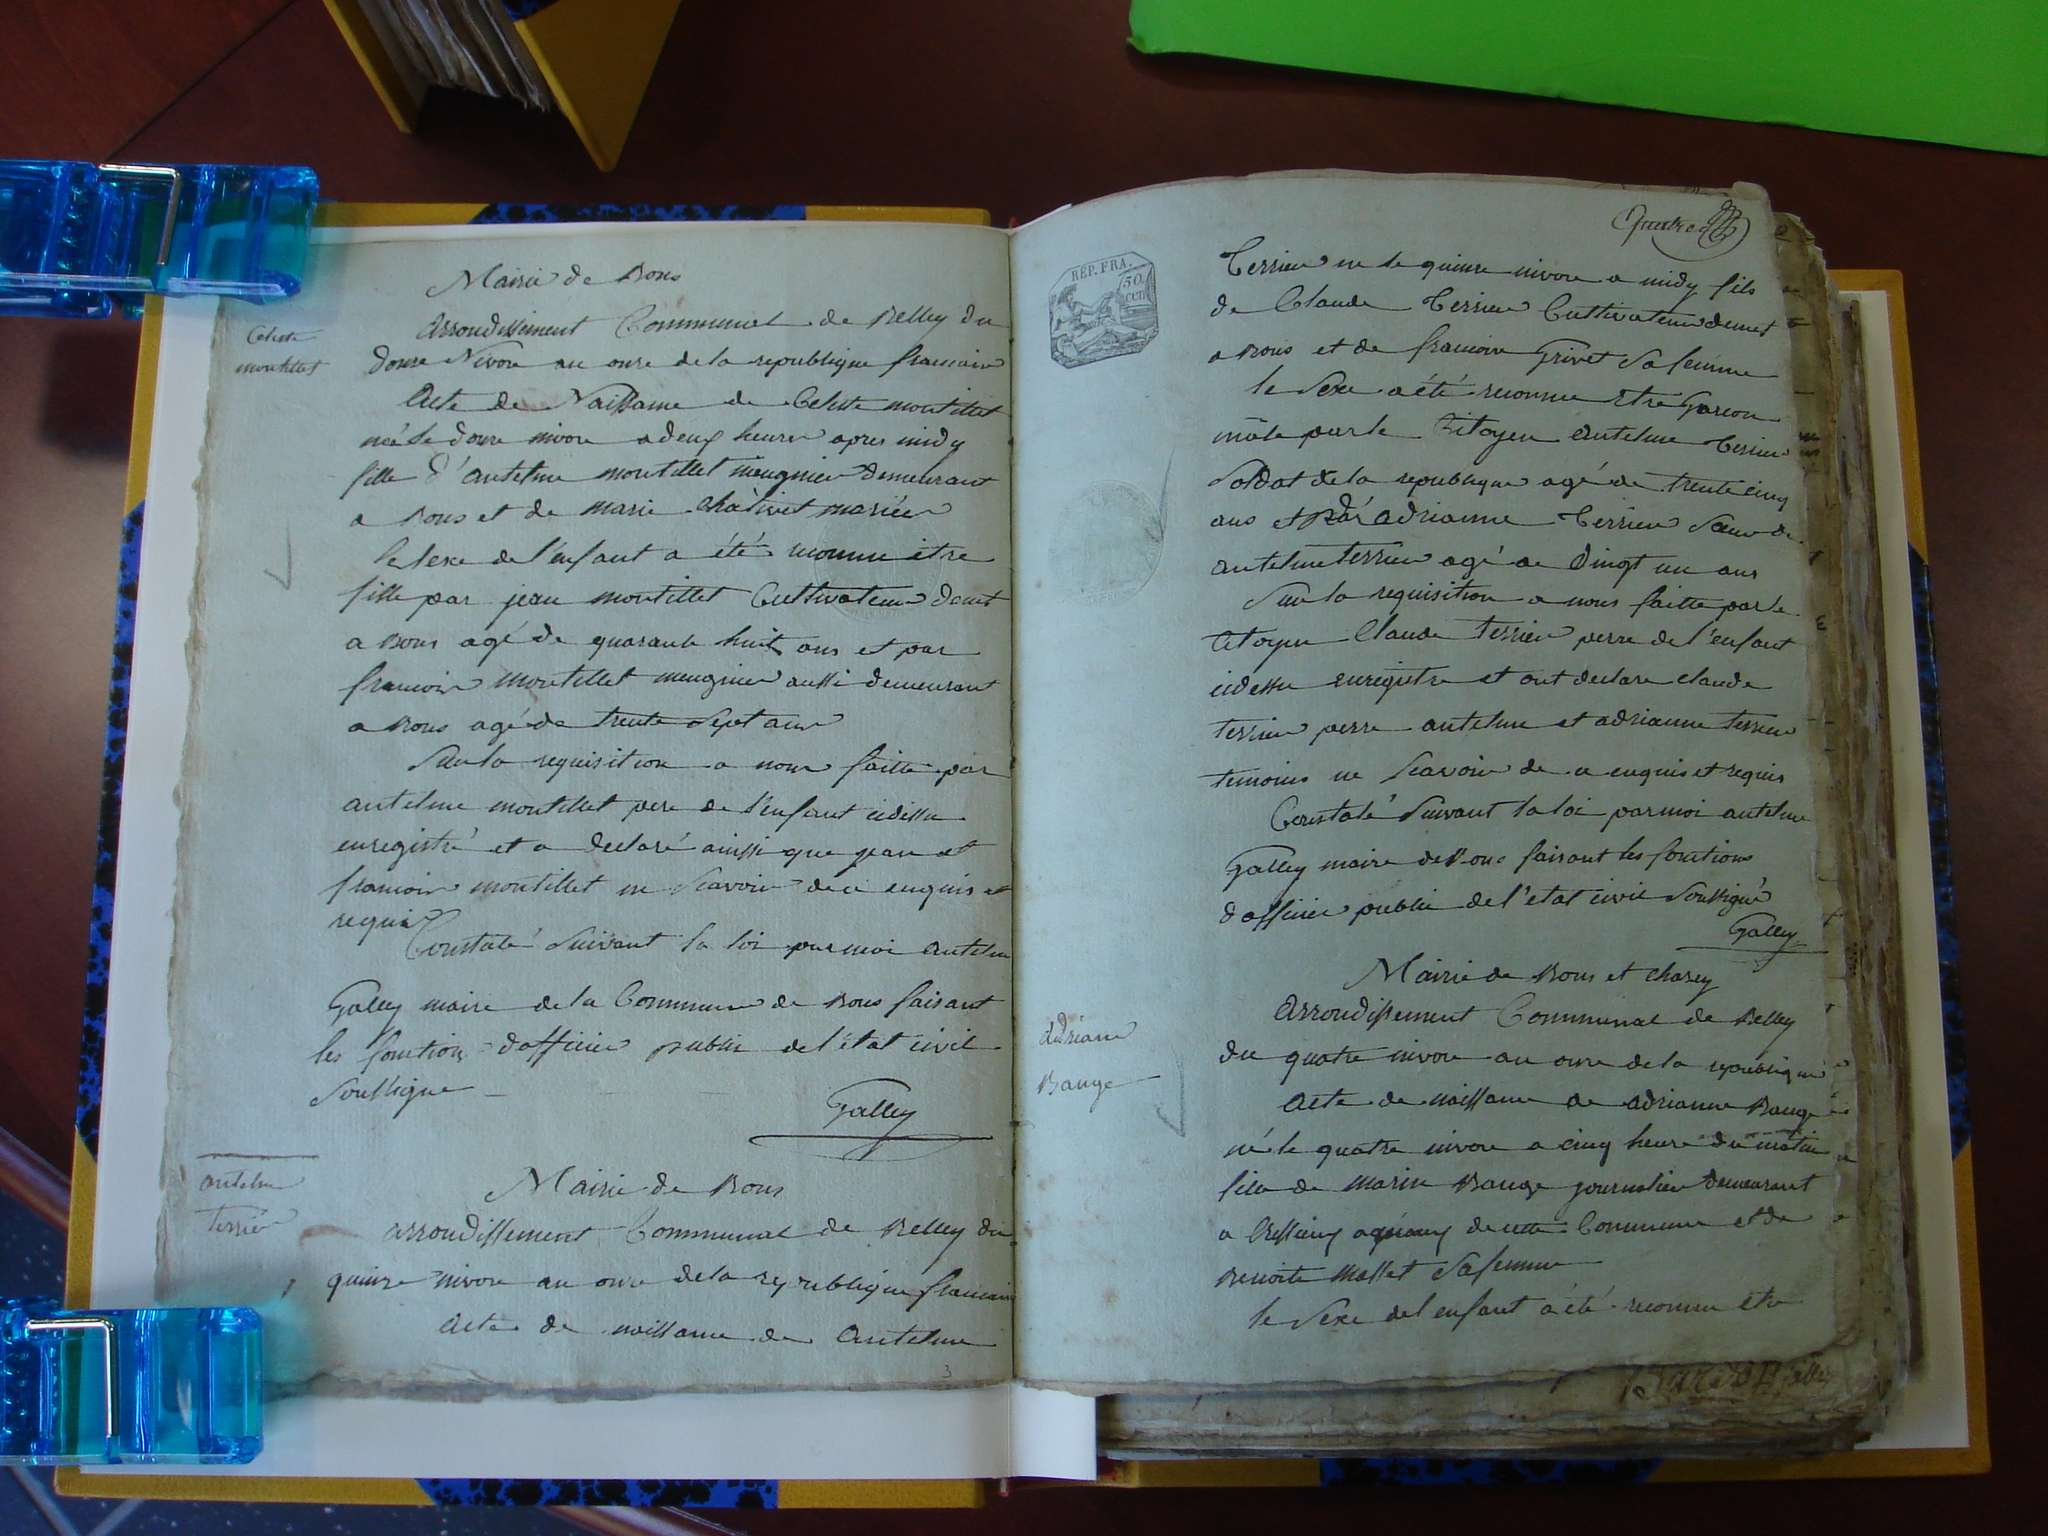 Mairie de Bons
Celeste
montillet
arrondissement Communal de Belley du
douze Nivose an onze de la republique francaise
Acte de Naissance de Celeste montillet
née le douze nivose a deux heures apres midy
fille d'antelme montillet meugnier demeurant
a Bons et de marie Chativet mariée
le sexe de l'enfant a été reconnu être
fille par jean montillet Cultivateur demt
a Bons agé de quarante huit ans et par
francois montillet meugnier aussi demeurant
a Bons agé de trente sept ans
Sur la requisition a nous faitte par
antelme montillet pere de l'enfant cidessu
enregistré et a declaré ainssi que jean et
francois montillet ne scavoir de ce enquis et
requis
Constaté suivant la loi par moi antelme
Galley maire de la Commune de Bons faisant
les fonctions d'afficier public de l'état civil
soussigne
Galley
antelme
terrier
Mairie de Bons
arrondissement Communal de Belley du
quinze nivose an onze de la republique francaise
Acte de naissance de Antelme
3
REP. FRA.
50
cen
Terrier ne le quinze nivose a midy fils
de Claude Terrier Cultivateur demet
a Bons et de francoise Grivet Sa femme
le Sexe a été reconnu Etre Garcon
mâle par le Citoyen Antelme Terrier
Soldat de la republique agé de trente cinq
ans et par adrianne Terrier Sœur de
antelme terrier agé de vingt un ans
Sur la requisition a nous faitte par le
Citoyen Claude terrier perre de l'enfant
cidessu enregistre et ont declare claude
terrier perre antelme et adrianne terrier
temoins ne scavoir de ce enquis et requis
Constaté Suivant la loi par moi antelme
Galley maire de Bons faisant les fonctions
d'afficier public de l'etat civil Soussigné
Galley
Mairie de Bons et chasey
Arrondissement Communal de Belley
du quatre nivose an onze de la republique
adriane
Bauge
Acte de naissance de adrianne Bauge
né le quatre nivose a cinq heure du matin
fille de marin Bauge journalier demeurant
a de cette Commune et de
Benoite mallet Sa femme
le Sexe de l'enfant a été reconnu etre